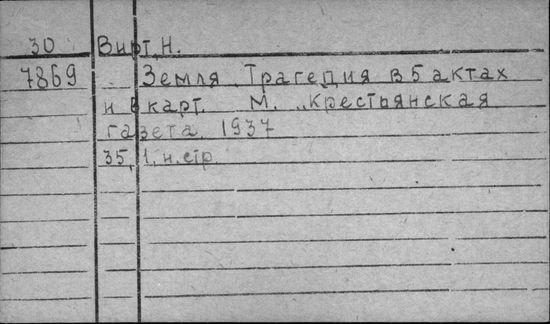 30 Вирт, Н.
7869 Земля. Трагедия в 5 актах
и 8 карт. М. „Крестьянская
газета 1937
35, 1, н. стр.